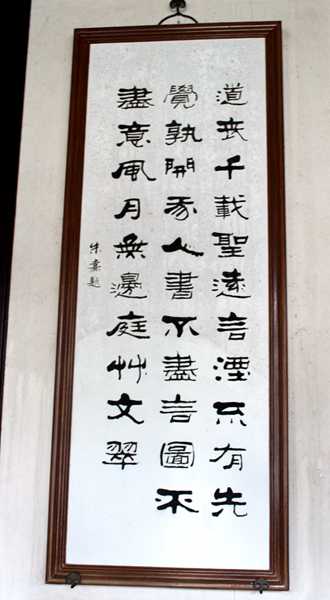 道喪千載聖遠言湮不有先
覺孰開我人書不盡言圖不
盡意風月無邊庭艸交翠
朱熹題